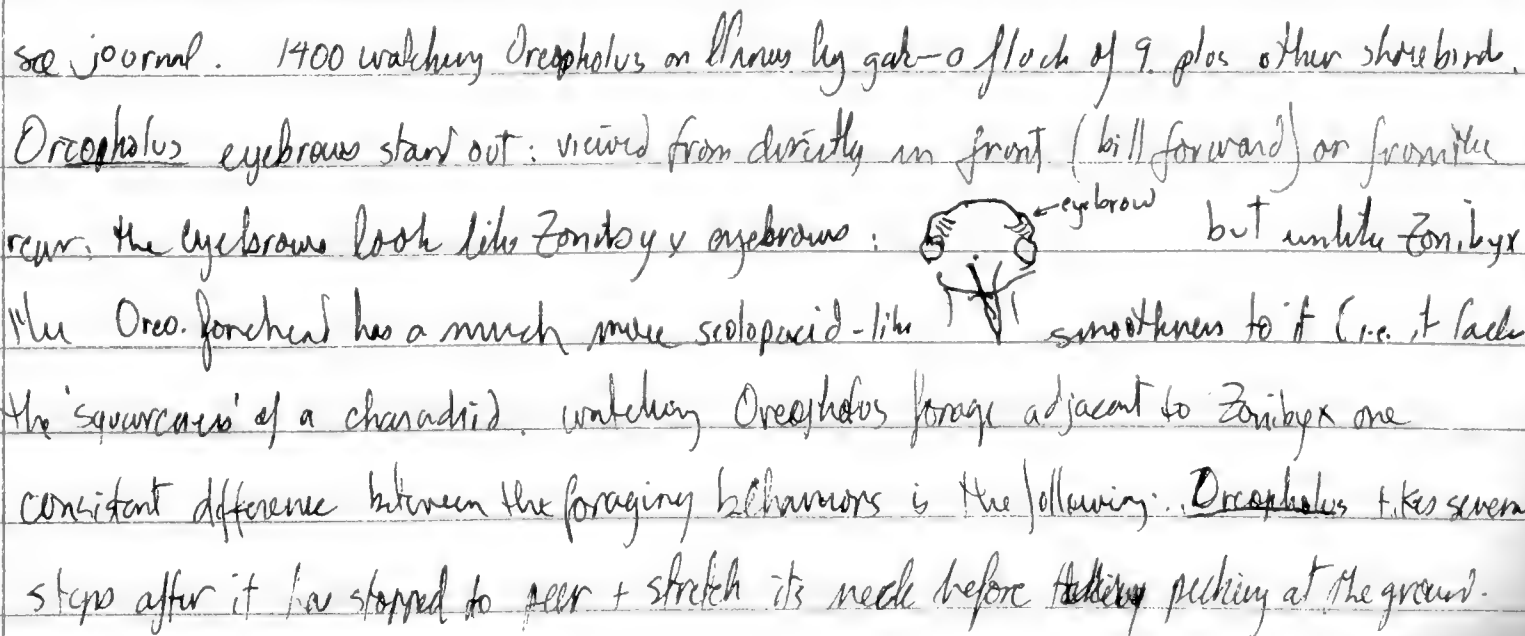 see journal. 1400 watching Oreopholus on llanos by gate - a flock of 9. plus other shorebird.
Oreopholus eyebrows stand out: viewed from directly in front (bill forward) or from the
rear: the eyebrows look like Zonibyx eyebrows: ←eyebrow but unlike Zonibyx
the Oreo. forehead has a much more scolopacid-like smoothness to it (i.e. it lacks
the 'squareness' of a charadrid. watching Oreopholus forage adjacent to Zonibyx one
consistant difference between the foraging behaviors is the following: Oreopholus takes severa
steps after it has stopped to peer + stretch its neck before pecking at the ground.